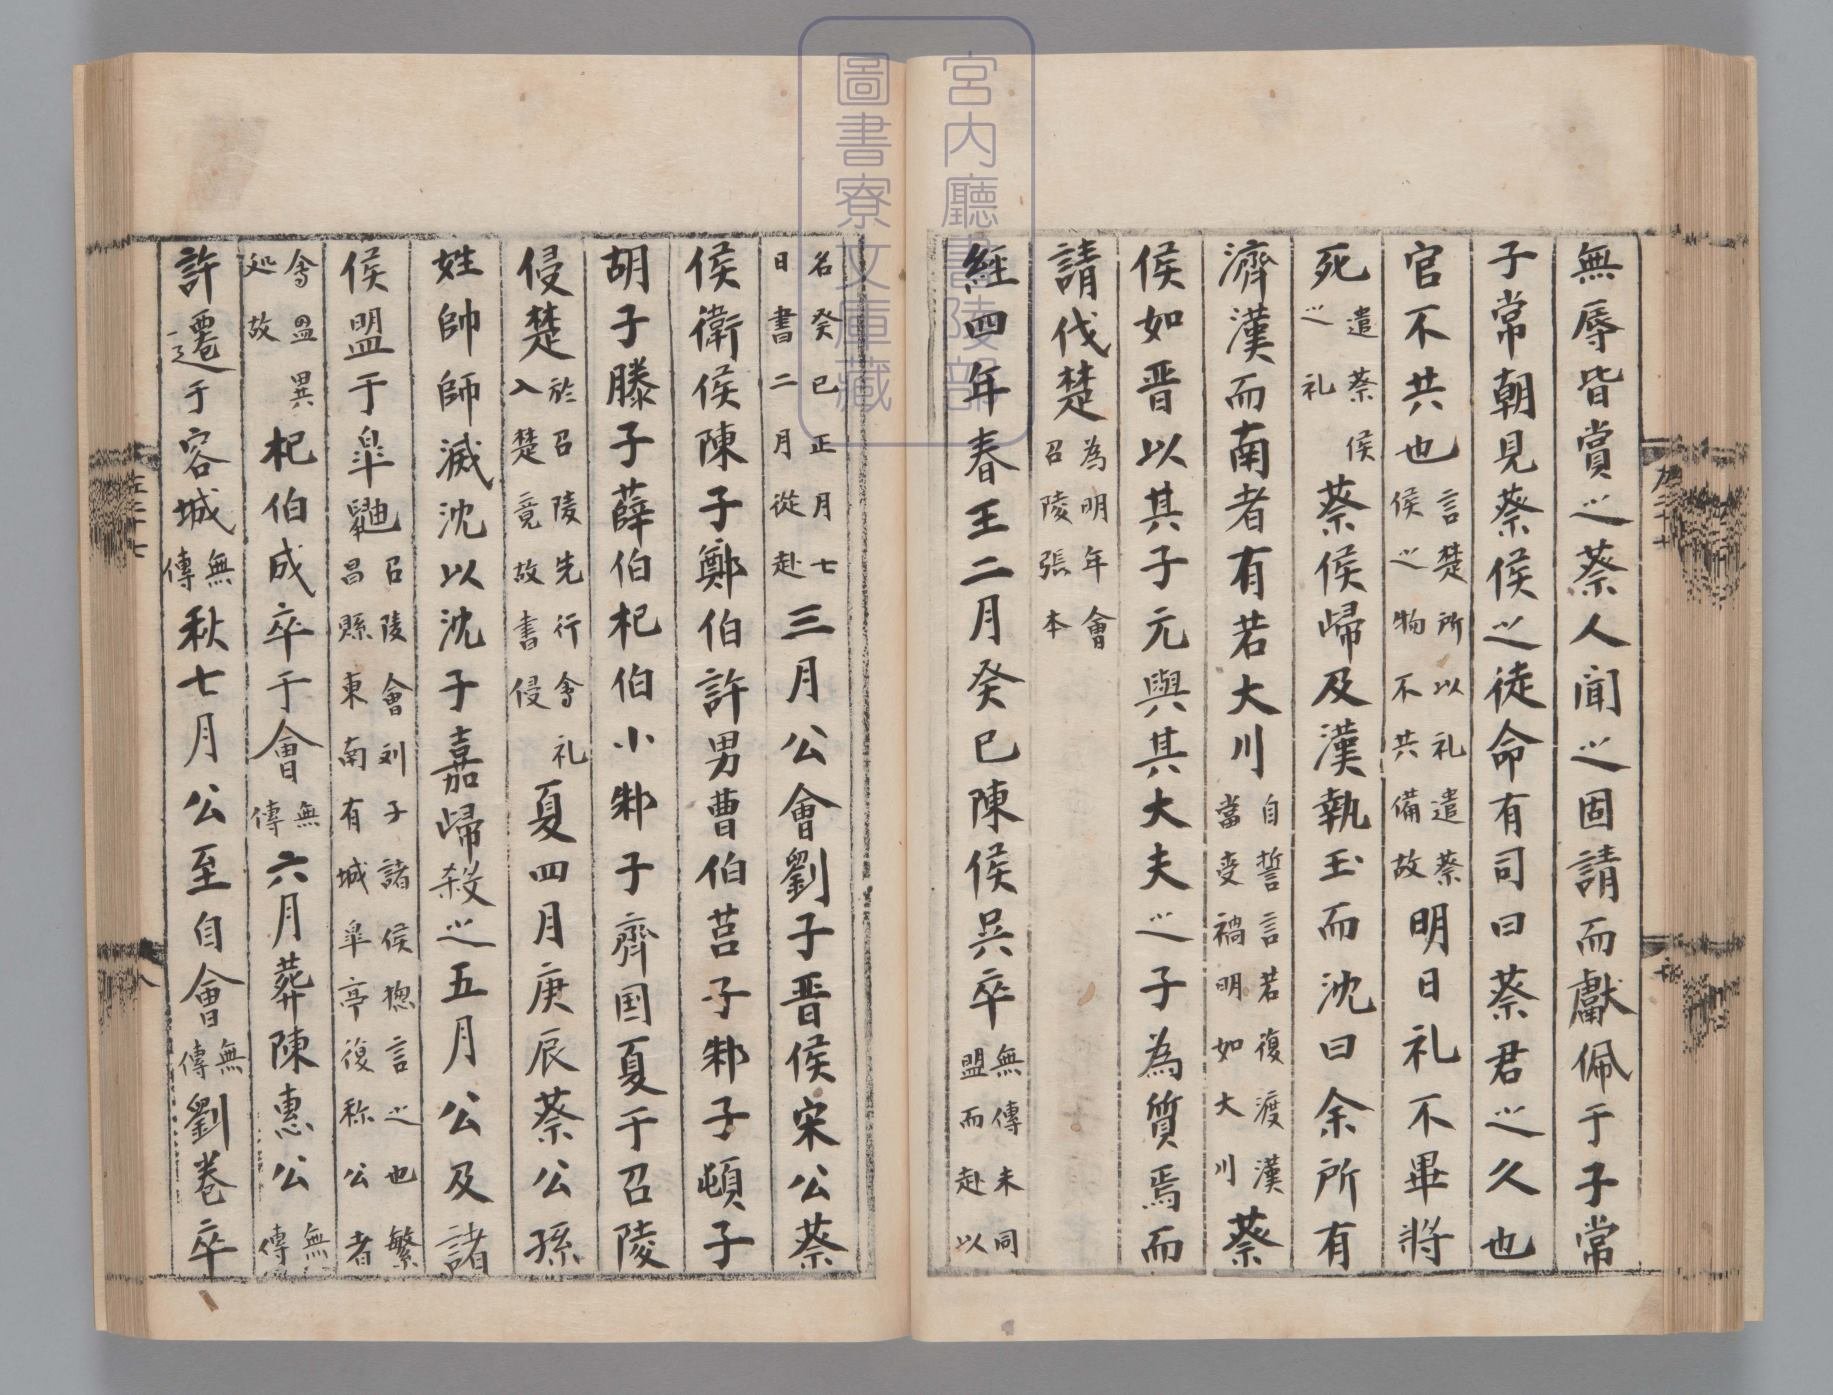 宮內廳書陵部
圖書寮文庫藏
無辱皆賞之蔡人聞之固請而獻佩于子常
子常朝見蔡侯之徒命有司曰蔡君之久也
官不共也言楚所以礼遣蔡侯之物不共備故明日礼不畢將
死遣蔡侯之礼蔡侯歸及漢執玉而沈曰余所有
濟漢而南者有若大川自誓言若復渡漢當受禍明如大川蔡
侯如晋以其子元與其大夫之子為質焉而
請伐楚為明年會召陵張本
經四年春王二月癸巳陳侯吳卒無傳未同盟而赴以
名癸巳正月七日書二月從赴三月公會劉子晋侯宋公蔡
侯衛侯陳子鄭伯許男曹伯莒子邾子頓子
胡子滕子薛伯杞伯小邾子齊国夏于召陵
侵楚於召陵先行會礼入楚竟故書侵夏四月庚辰蔡公孫
姓帥師滅沈以沈子嘉歸殺之五月公及諸
侯盟于皐鼬召陵會刘子諸侯揔言之也繁昌縣東南有城皐亭復称公者
會盟異処故杞伯成卒于會無傳六月葬陳惠公無傳
許遷于容城無傳秋七月公至自會無傳劉卷卒